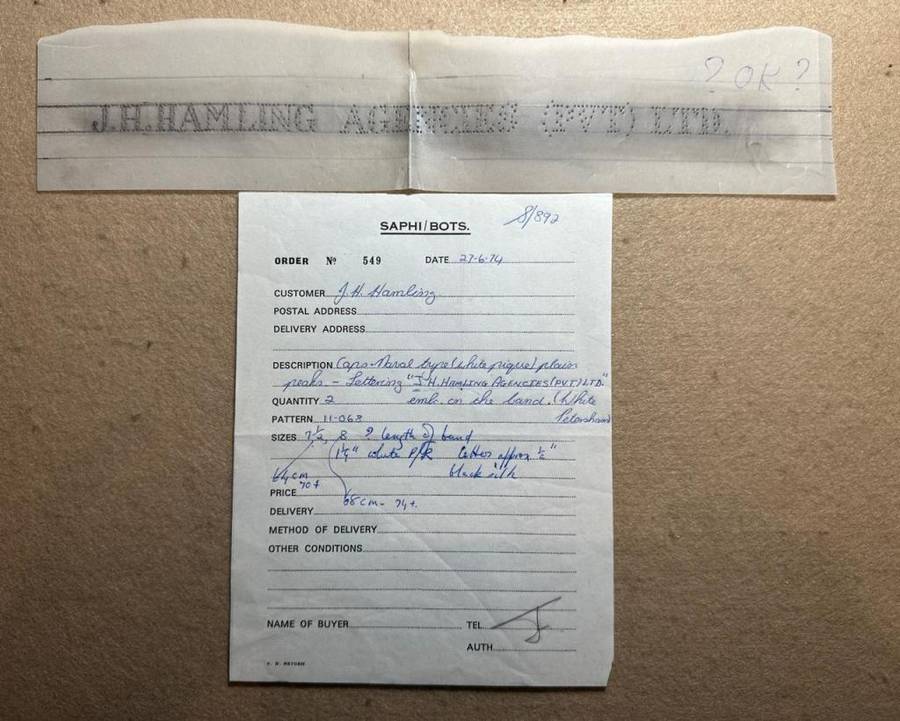 ? OK ?
J.H. HAMLING AGENCIES (PVT) LTD.
SAPHI/BOTS.
S/892
ORDER Nº 549 DATE 27-6-74
CUSTOMER J.H. Hamling
POSTAL ADDRESS
DELIVERY ADDRESS
DESCRIPTION Caps Naval type (white pique) plain
peaks - Lettering "J.H. HAMLING AGENCIES (PVT) LTD."
QUANTITY 2 emb. on the band. (White
PATTERN 11-068 Petersham
SIZES 7½, 8 ? length of band
1¼" white P/R letters approx ½"
64cm black silk
70+
PRICE
68cm - 74+.
DELIVERY
METHOD OF DELIVERY
OTHER CONDITIONS
NAME OF BUYER TEL
AUTH